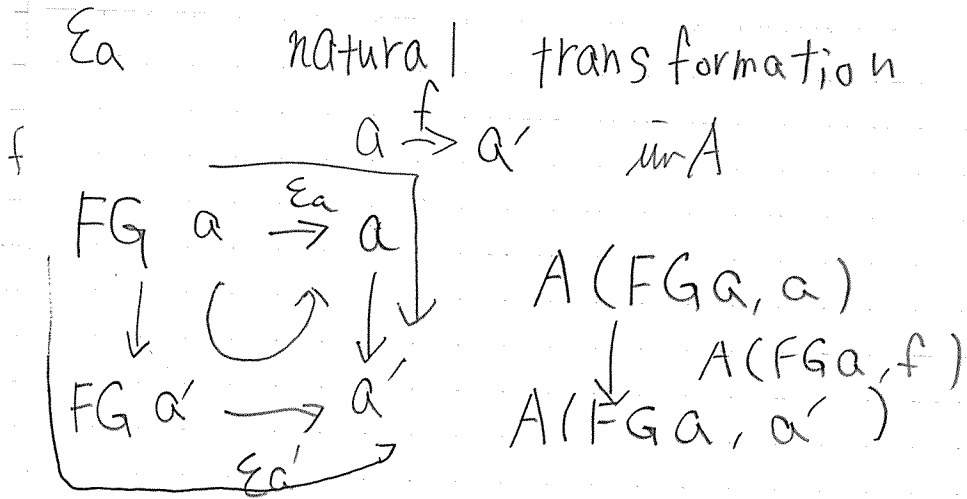 εa natural transformation
a f→ a' in A
f
FG a εa→ a
A(FGa, a)
A(FGa, f)
FG a' → a'
A(FGa, a')
εa'